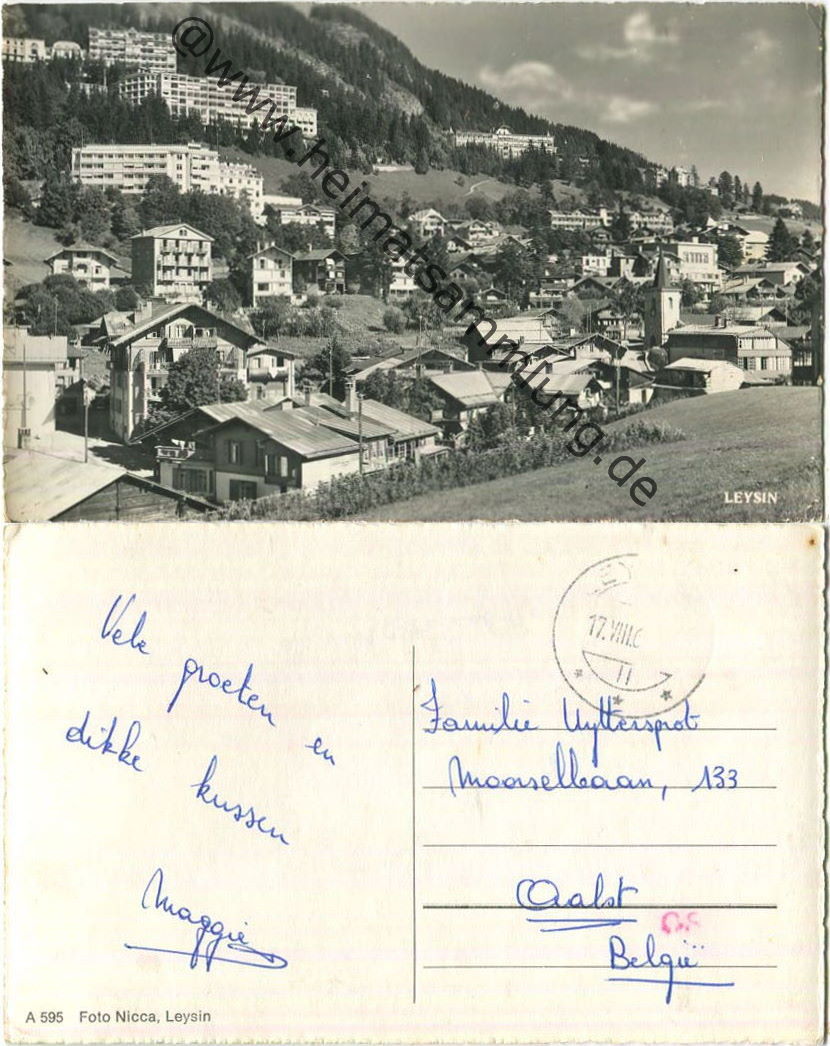 @www.heimatsammlung.de
LEYSIN
Vele
groeten en
dikke kussen
Maggie
17.VIII.6
11
Familie Uyttersprot
Moorselbaan, 133
Aalst
België
A 595 Foto Nicca, Leysin